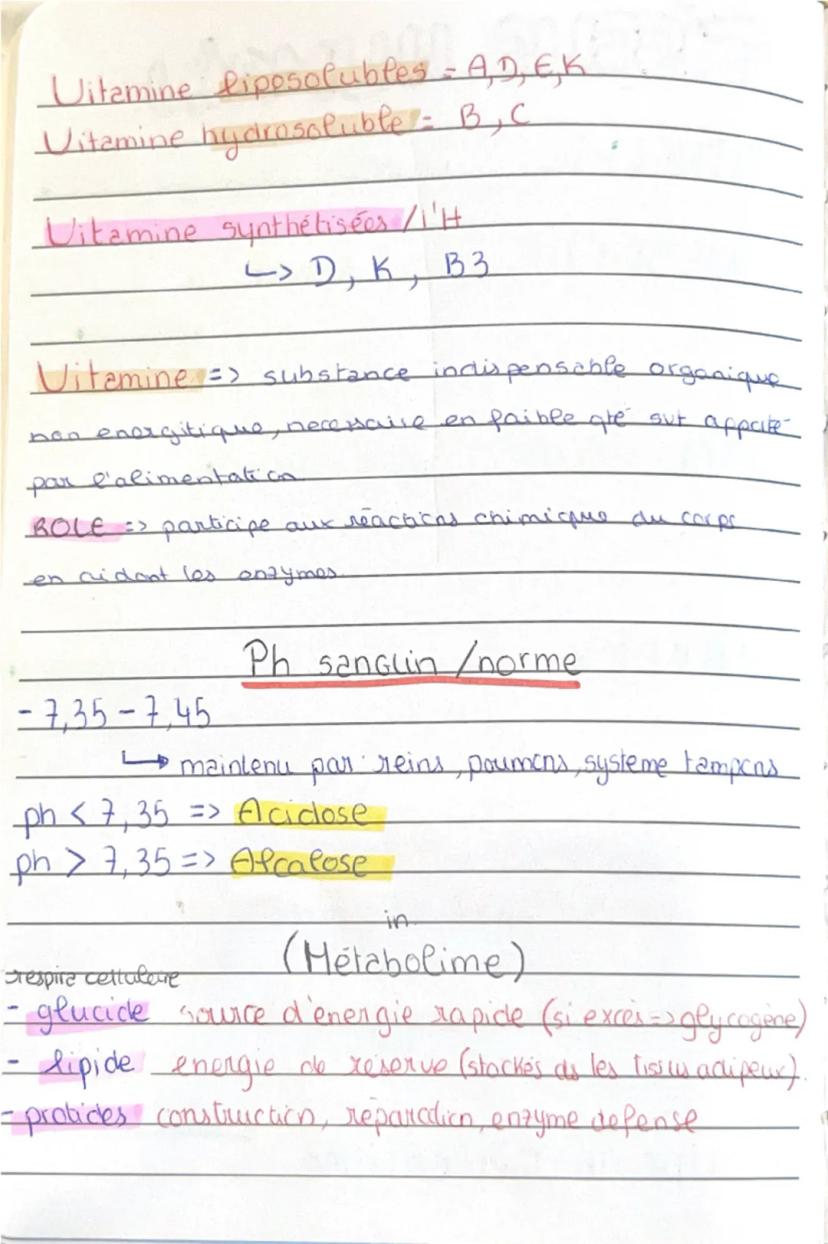 Vitamine liposolubles = A, D, E, K
Vitamine hydrosoluble = B, C
Vitamine synthétisées / l'H
↳ D, K, B3
Vitamine => substance indispensable organique
non energitique, necessaire en faible qté svt apporté
par l'alimentation
ROLE => participe aux réactions chimique du corps
en aidant les enzymes
Ph sanguin /norme
- 7,35 - 7,45
↳ maintenu par reins, poumons, systeme tampons
ph < 7,35 => Acidose
ph > 7,35 => Alcalose
in
(Métabolime)
respire cellulaire
- glucide source d'énergie rapide (si excès => glycogène)
- lipide energie de réserve (stockés ds les tissus adipeux).
- protides construction, réparation, enzyme defense